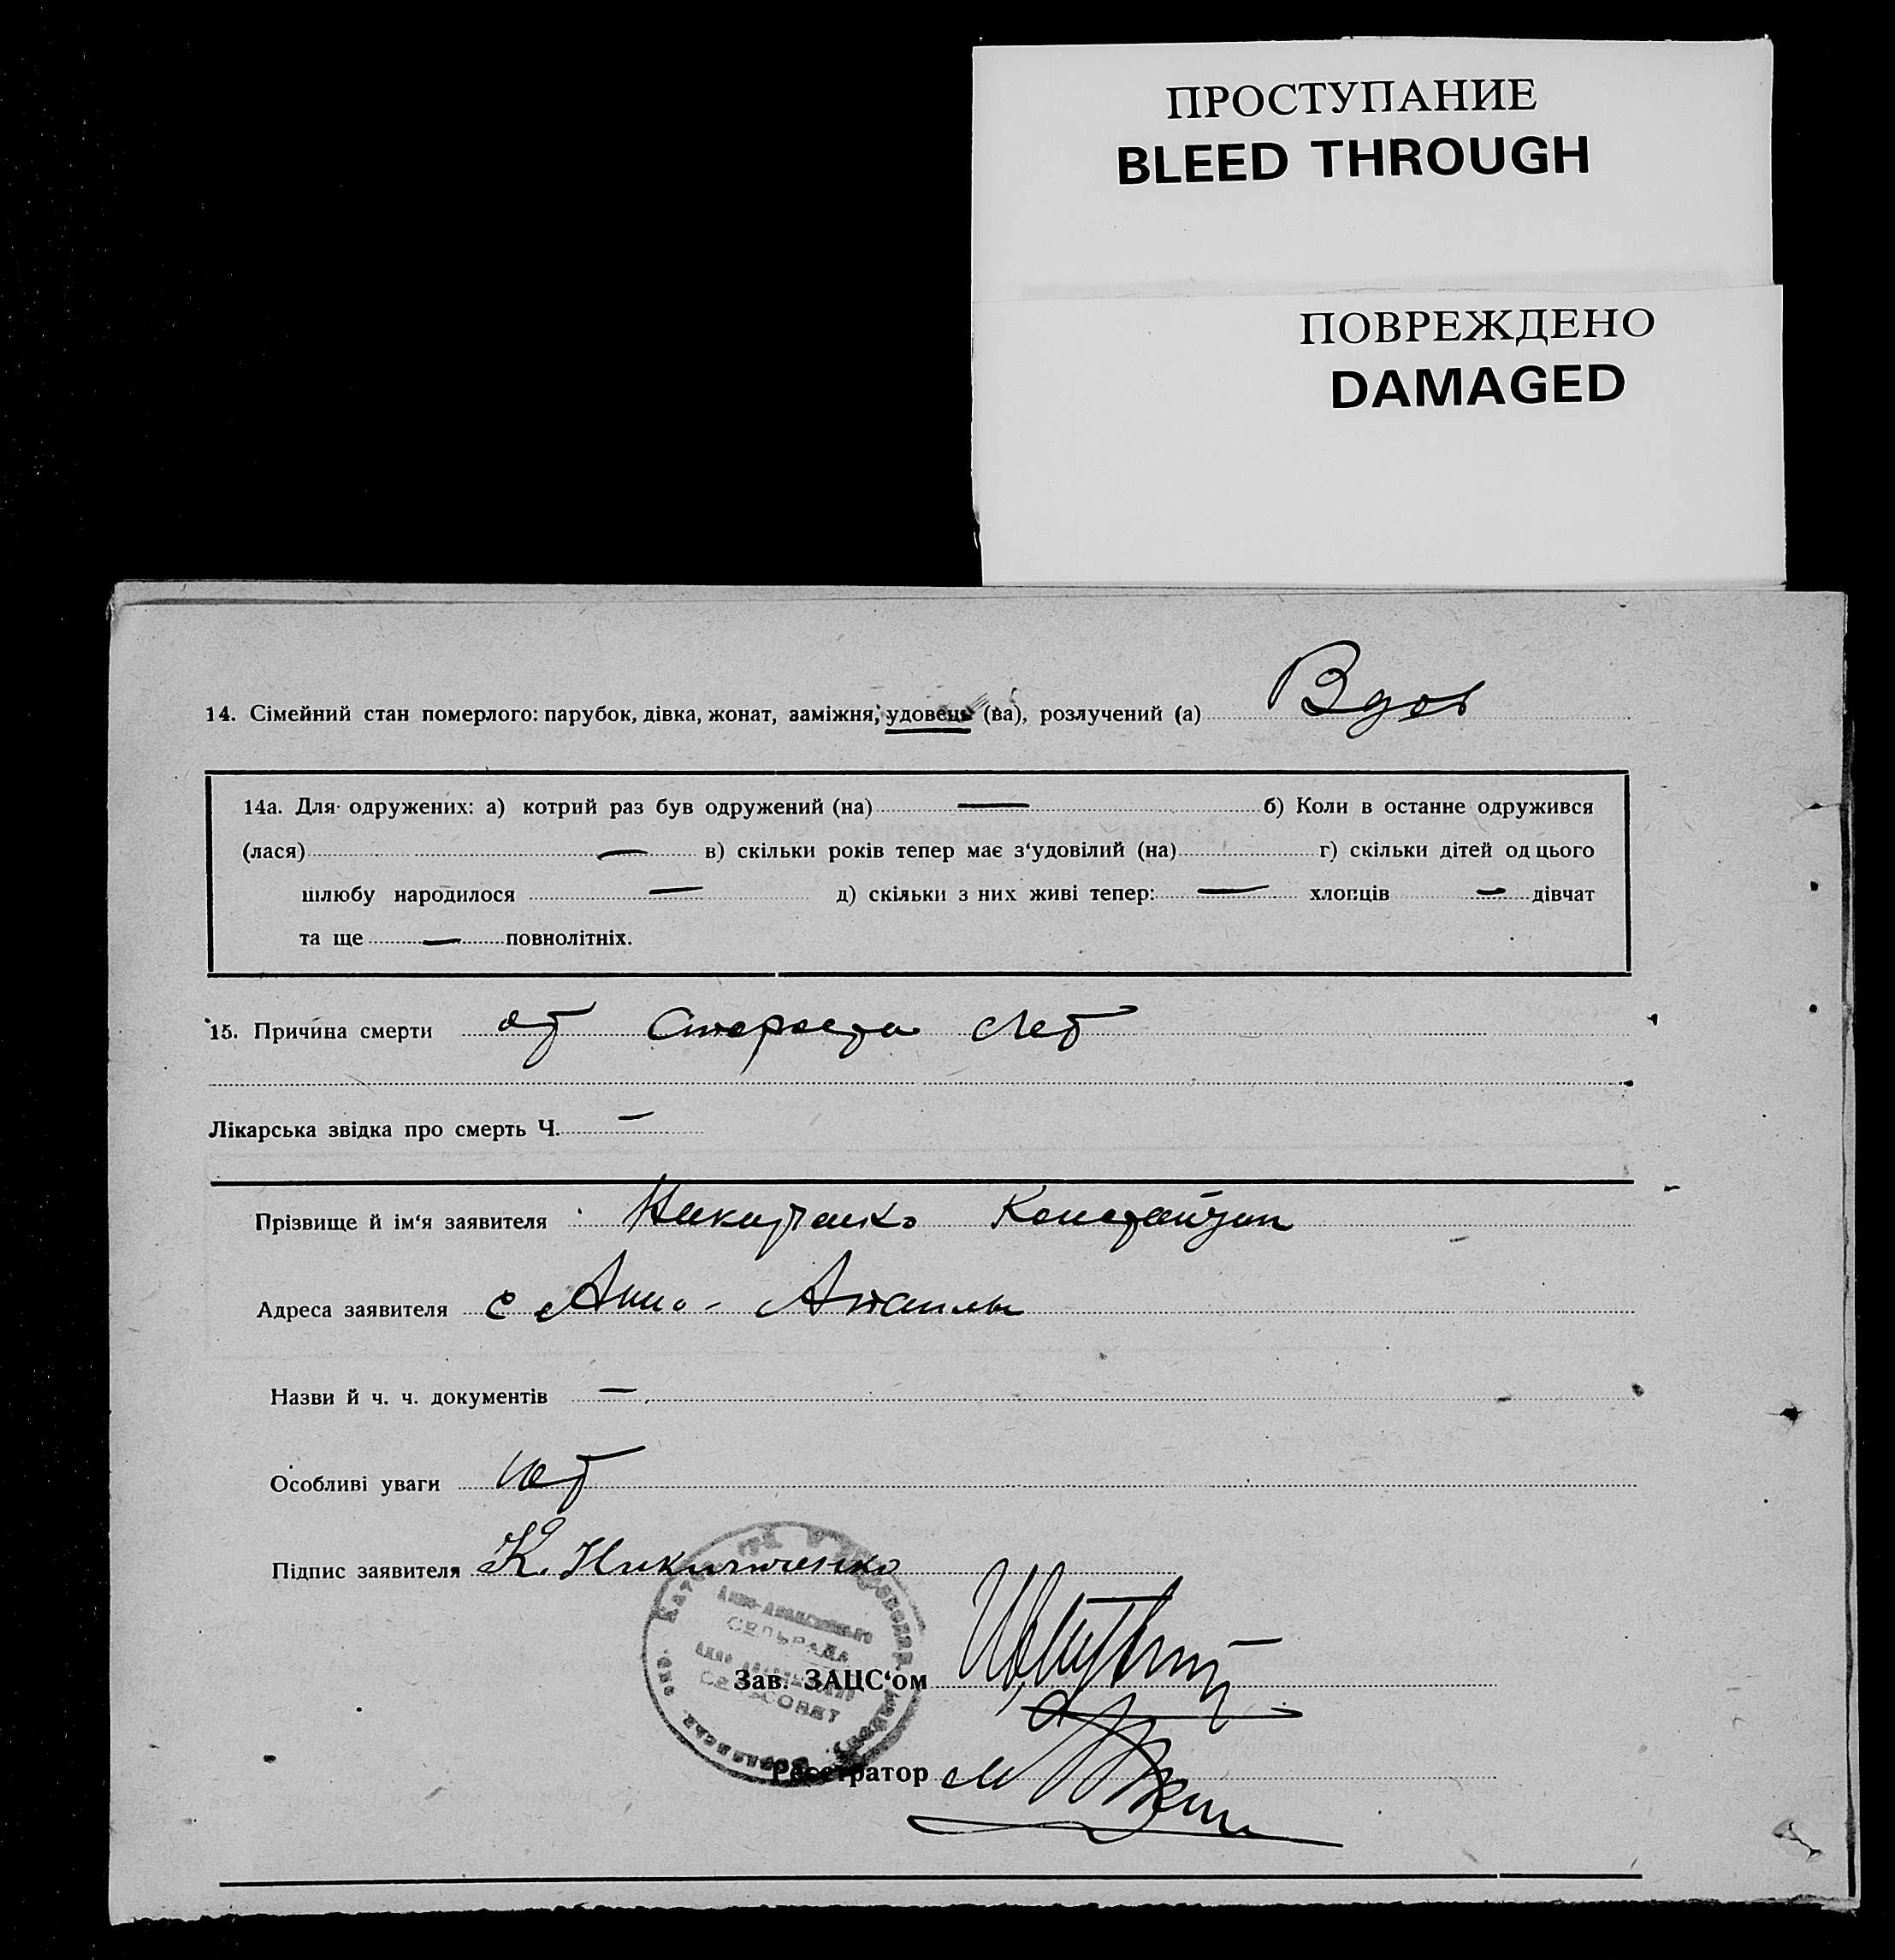 ПРОСТУПАНИЕ
BLEED THROUGH
ПОВРЕЖДЕНО
DAMAGED
14. Сімейний стан померлого: парубок, дівка, жонат, заміжня, удовець (ва), розлучений (а) Вдов
14а. Для одружених: а) котрий раз був одружений (на) — б) Коли в останне одружився
(лася) — в) скільки років тепер має з‘удовілий (на) г) скільки дітей од цього
шлюбу народилося — д) скільки з них живі тепер: — хлопців — дівчат
та ще — повнолітніх.
15. Причина смерти от старости лет
Лікарська звідка про смерть Ч. —
Прізвище й ім‘я заявителя Никитенко Константин
Адреса заявителя с Анно-
Назви й ч. ч. документів —
Особливі уваги нет
Підпис заявителя К. Никитченко
СЕЛЬРАДА
Зав. ЗАЦС‘ом
СЕЛЬСОВЕТ
Реєстратор